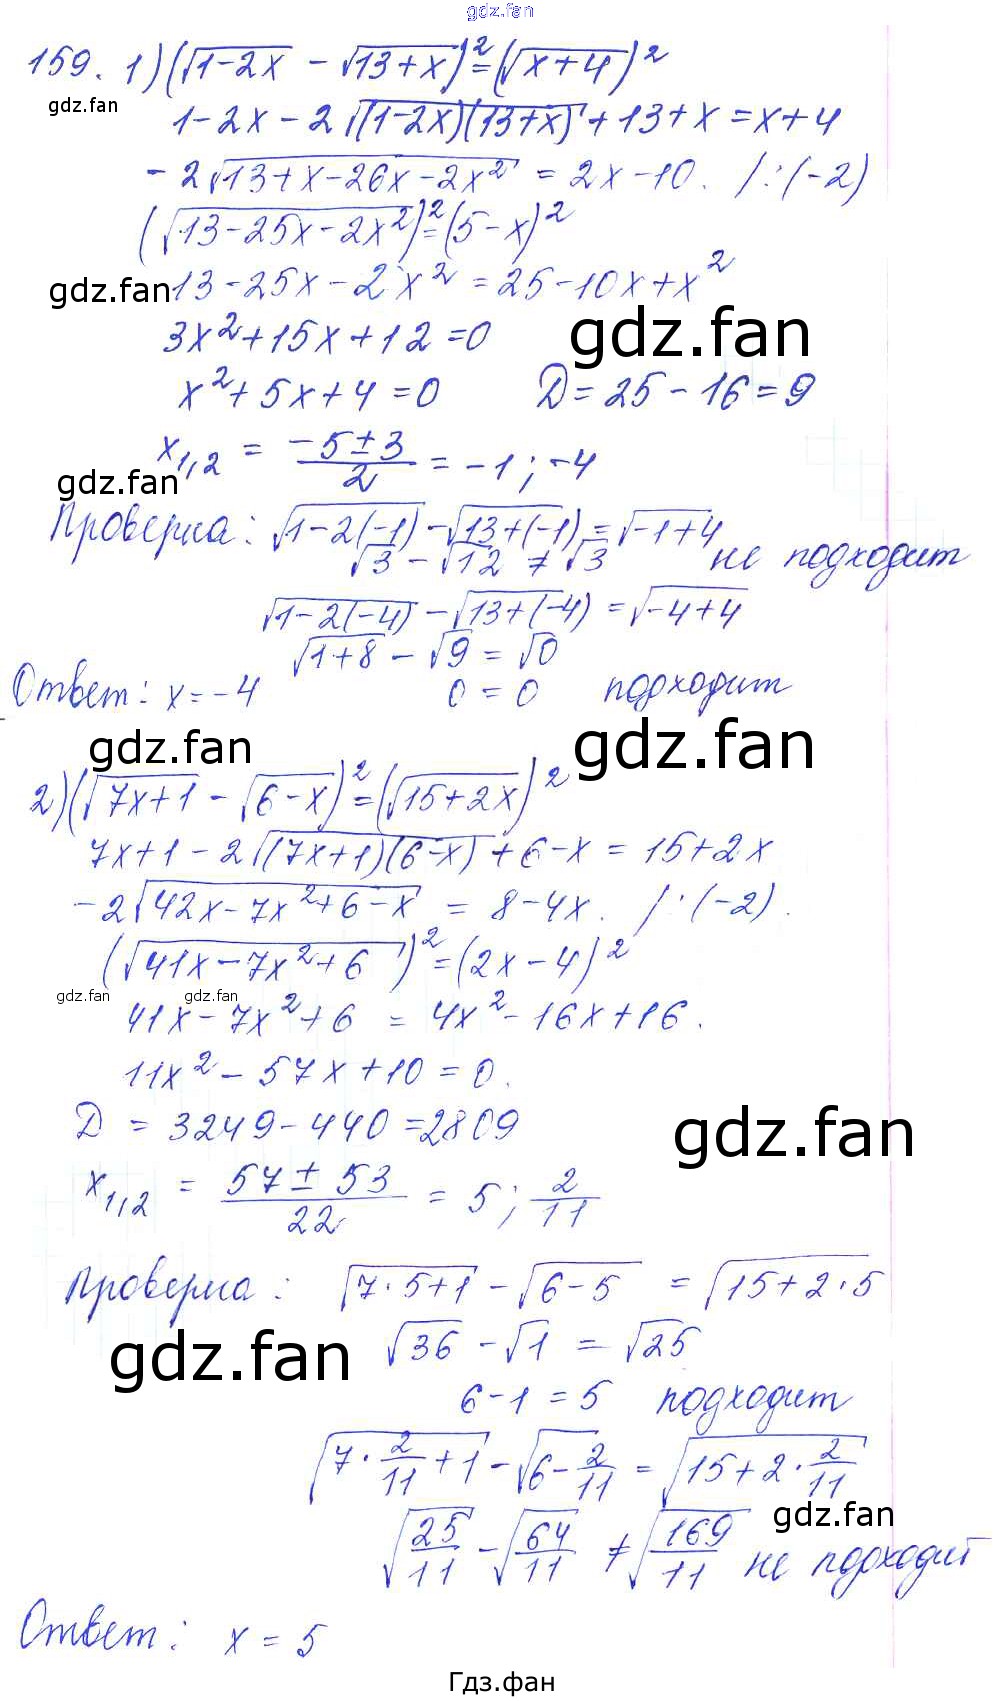 gdz.fan
159. 1) (√(1-2x) - √(13+x))² = (√(x+4))²
gdz.fan
1-2x-2√((1-2x)(13+x)) + 13+x = x+4
-2√(13+x-26x-2x²) = 2x-10. /:(-2)
(√(13-25x-2x²))² = (5-x)²
gdz.fan
13-25x-2x² = 25-10x+x²
gdz.fan
3x²+15x+12=0
x²+5x+4=0 D=25-16=9
x₁,₂ = (-5±3)/2 = -1; -4
gdz.fan
Проверка: √(1-2(-1)) - √(13+(-1)) = √(-1+4)
√3 - √12 ≠ √3 не подходит
√(1-2(-4)) - √(13+(-4)) = √(-4+4)
√(1+8) - √9 = √0
Ответ: x=-4 0=0 подходит
gdz.fan gdz.fan
2) (√(7x+1) - √(6-x))² = (√(15+2x))²
7x+1-2√((7x+1)(6-x)) + 6-x = 15+2x
-2√(42x-7x²+6-x) = 8-4x. /:(-2).
(√(41x-7x²+6))² = (2x-4)²
gdz.fan gdz.fan
41x-7x²+6 = 4x²-16x+16.
11x²-57x+10=0.
D = 3249-440=2809
gdz.fan
x₁,₂ = (57±53)/22 = 5; 2/11
Проверка: √(7·5+1) - √(6-5) = √(15+2·5)
gdz.fan
√36 - √1 = √25
6-1=5 подходит
√(7·2/11+1) - √(6-2/11) = √(15+2·2/11)
gdz.fan
√(25/11) - √(64/11) ≠ √(169/11) не подходит
Ответ: x=5
Гдз.фан